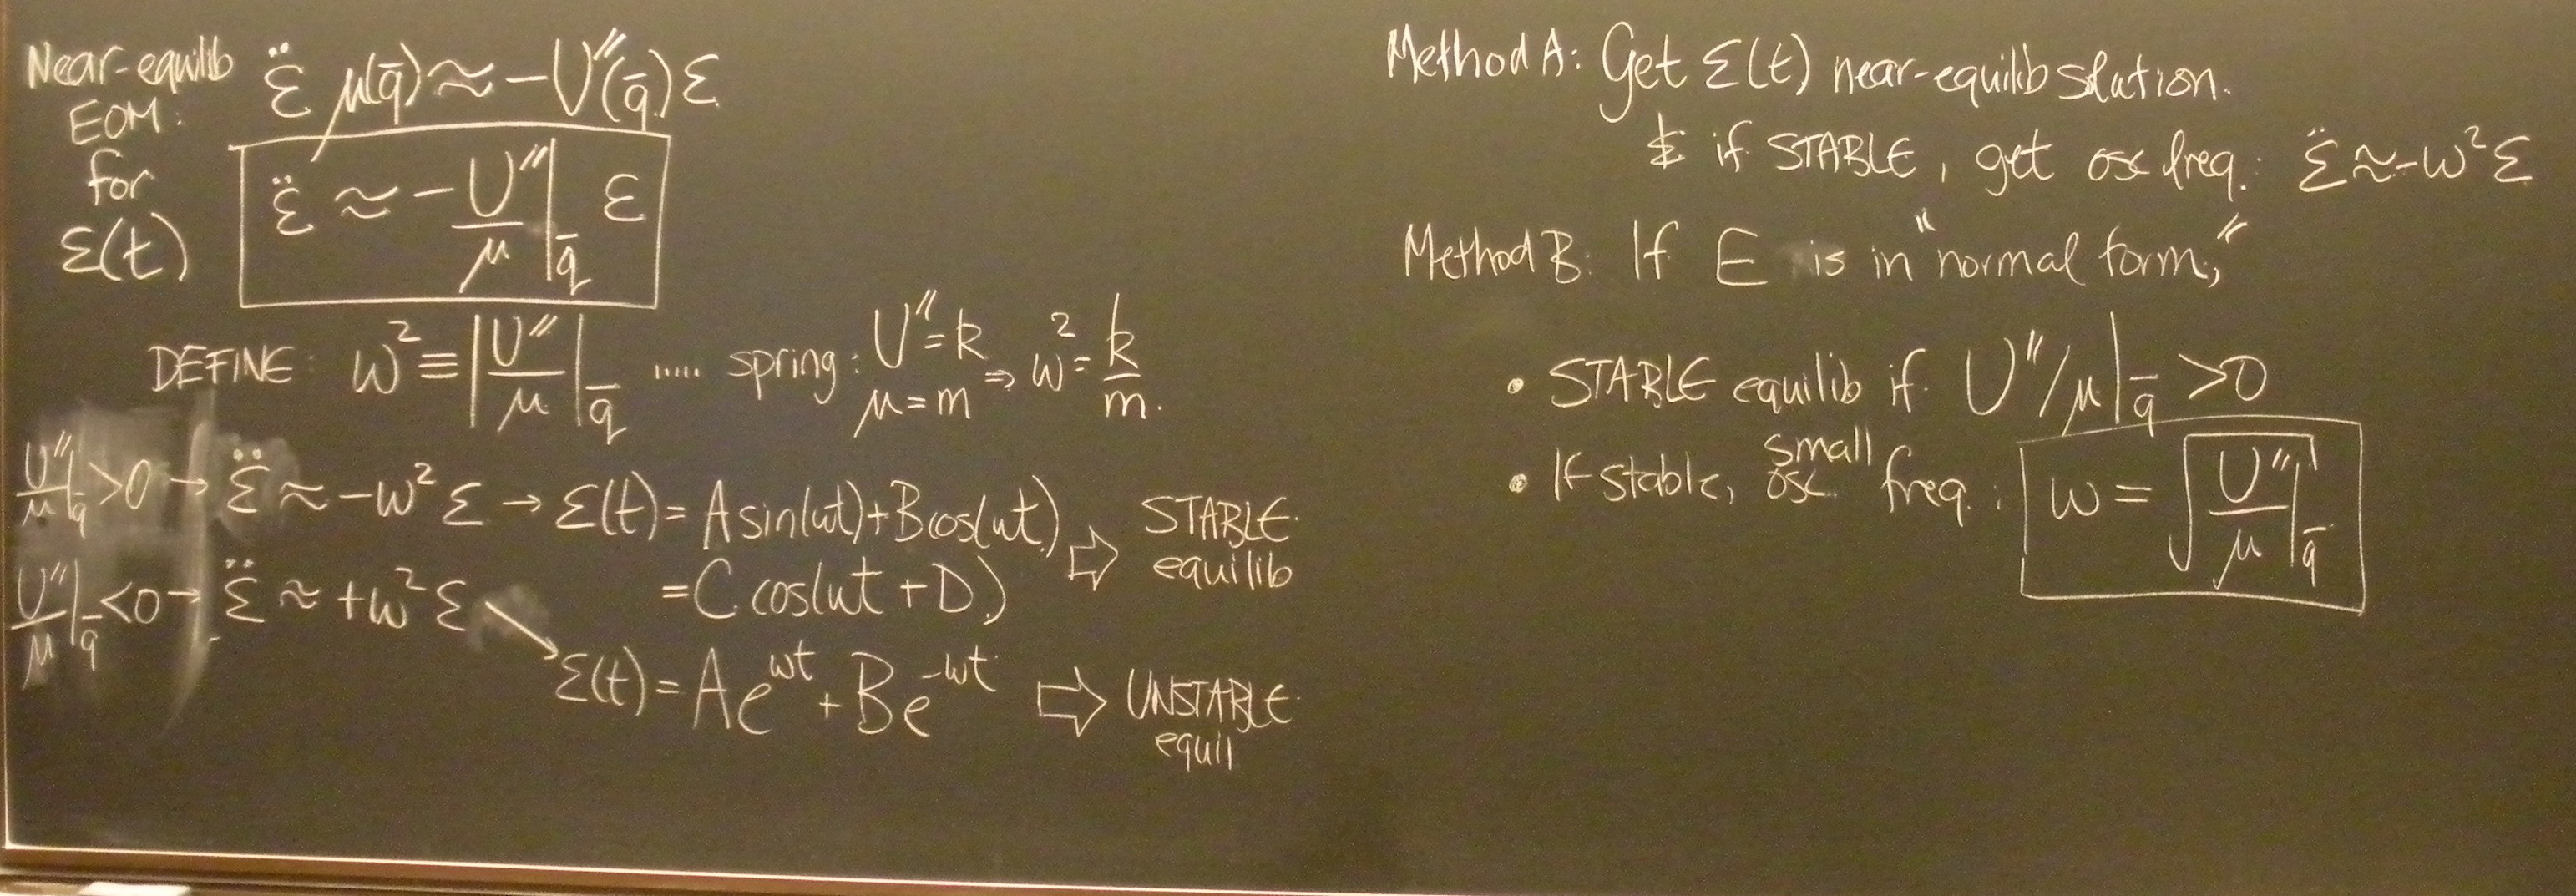 Near-equilib EOM: for ε(t)
ε̈ μ(q̄) ≈ -U″(q̄) ε
ε̈ ≈ - U″/μ |q̄ ε
DEFINE: ω² ≡ |U″/μ|q̄ ..... spring: U″ = k, μ = m ⇒ ω² = k/m.
U″/μ|q̄ >0 → ε̈ ≈ -ω² ε → ε(t) = A sin(ωt) + B cos(ωt) ⇨ STABLE equilib
= C cos(ωt + D)
U″/μ|q̄ <0 → ε̈ ≈ +ω² ε
ε(t) = A e^ωt + B e^-ωt ⇨ UNSTABLE equil
Method A: Get ε(t) near-equilib solution.
& if STABLE, get osc freq: ε̈ ≈ -ω² ε
Method B: If E is in "normal form,"
• STABLE equilib if U″/μ|q̄ >0
• If stable, small osc. freq.: ω = √(U″/μ|q̄)